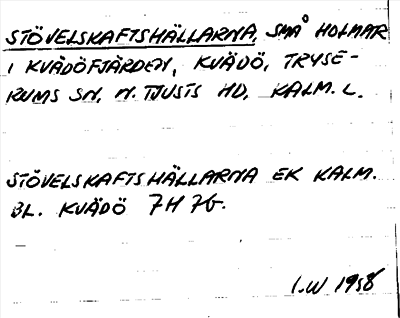 STÖVELSKAFTSHÄLLARNA, SMÅ HOLMAR
I KVÄDÖFJÄRDEN, KVÄDÖ, TRYSE-
RUMS SN, N. TJUSTS HD, KALM. L.
STÖVELSKAFTSHÄLLARNA EK KALM.
BL. KVÄDÖ 7H 7G.
I.W 1958